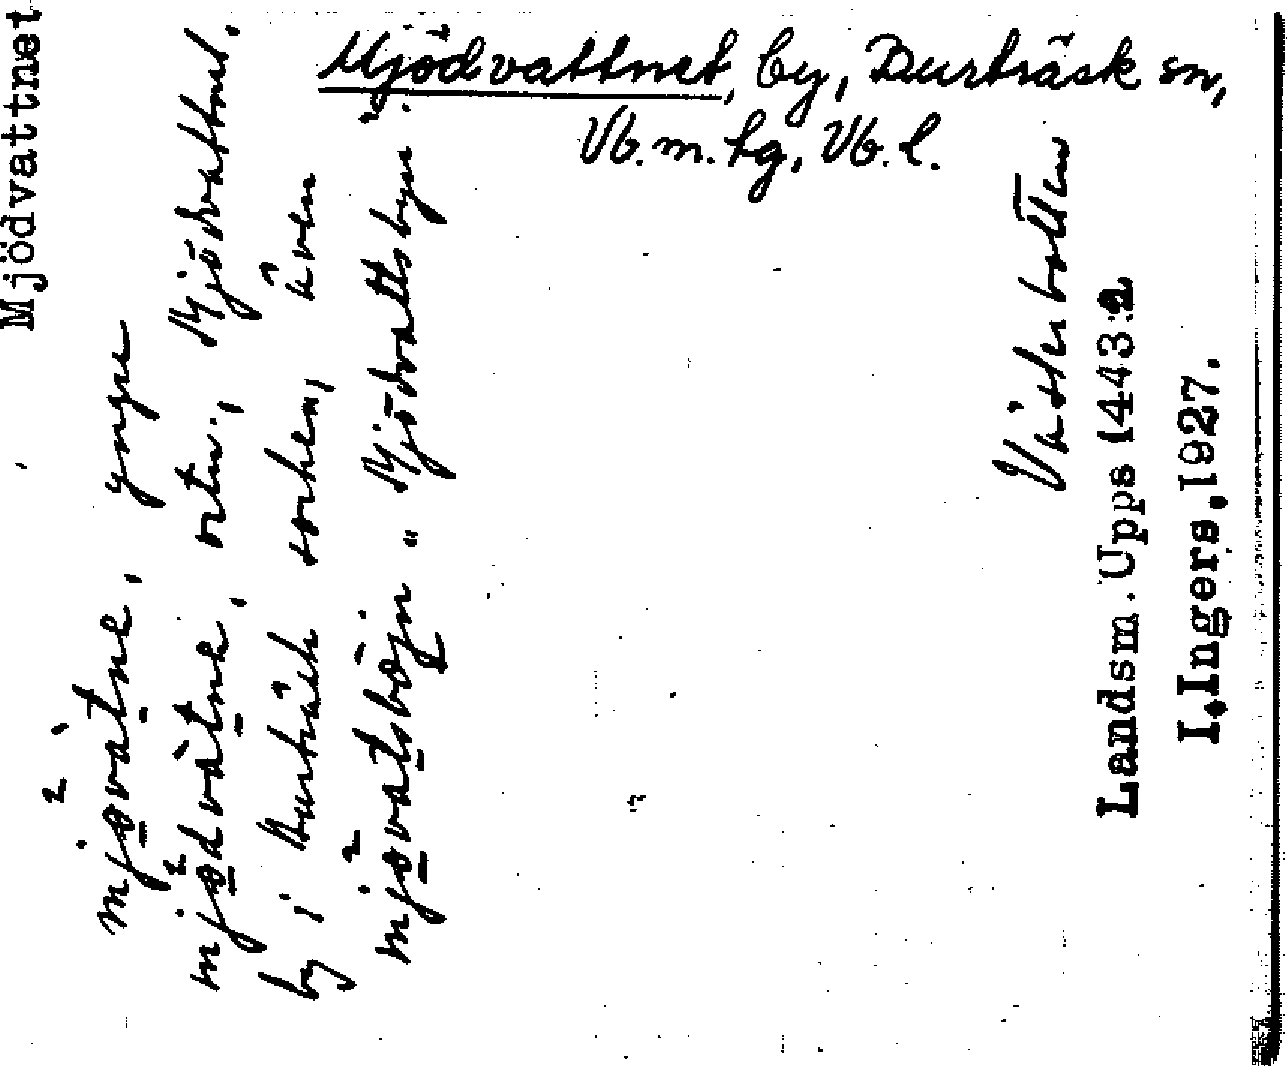 Mjödvattnet
Mjödvattnet, by, Burträsk sn,
Vb. m. hg, Vb. l.
mjøvatne, yngre
mjødvàtne, ortn., Mjödvattnet,
by i Burträsk socken, även
mjøvatsbȫjn „ Mjödvattsbyn".
Västerbotten
Landsm. Upps 1443:a
I. Ingers, 1927.